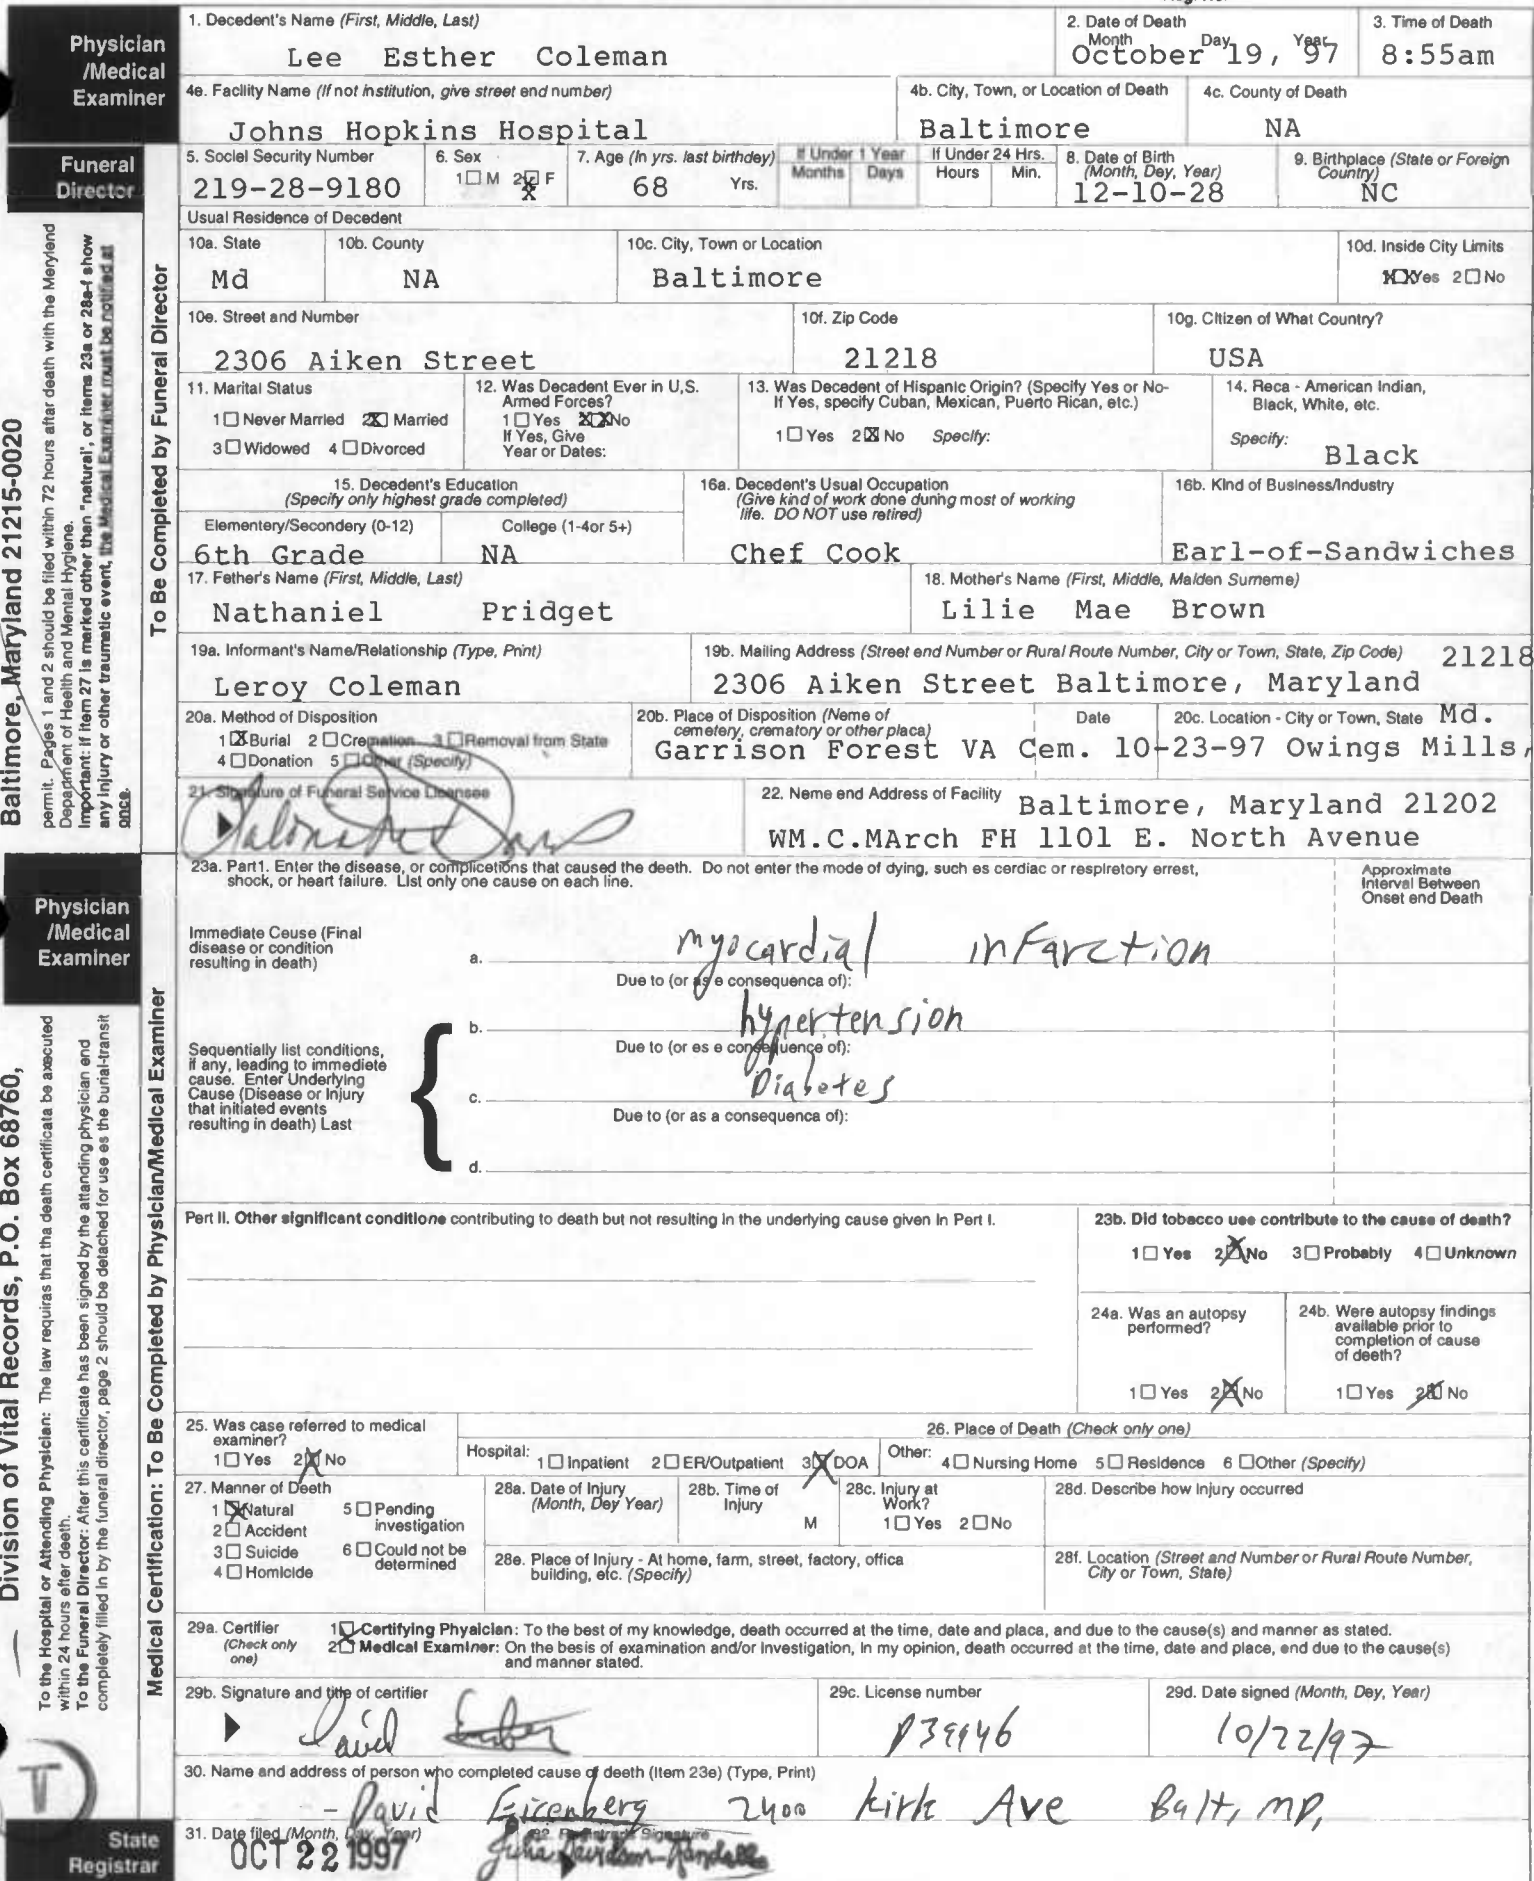 Physician /Medical Examiner
1. Decedent's Name (First, Middle, Last)
Lee Esther Coleman
2. Date of Death
Month Day Year
October 19, 97
3. Time of Death
8:55am
4e. Facility Name (If not institution, give street end number)
Johns Hopkins Hospital
4b. City, Town, or Location of Death
Baltimore
4c. County of Death
NA
Funeral Director
5. Sociel Security Number
219-28-9180
6. Sex
1☐ M 2☒ F
7. Age (In yrs. last birthdey)
68 Yrs.
If Under 1 Year
Months Days
If Under 24 Hrs.
Hours Min.
8. Date of Birth
(Month, Dey, Year)
12-10-28
9. Birthplace (State or Foreign Country)
NC
Usual Residence of Decedent
10a. State
Md
10b. County
NA
10c. City, Town or Location
Baltimore
10d. Inside City Limits
1☒ Yes 2☐ No
10e. Street and Number
2306 Aiken Street
10f. Zip Code
21218
10g. Citizen of What Country?
USA
11. Marital Status
1☐ Never Married 2☒ Married
3☐ Widowed 4☐ Divorced
12. Was Decadent Ever in U,S.
Armed Forces?
1☐ Yes 2☒ No
If Yes, Give
Year or Dates:
13. Was Decedent of Hispanic Origin? (Specify Yes or No-
If Yes, specify Cuban, Mexican, Puerto Rican, etc.)
1☐ Yes 2☒ No Specify:
14. Reca - American Indian,
Black, White, etc.
Specify:
Black
15. Decedent's Education
(Specify only highest grade completed)
Elementery/Secondery (0-12)
6th Grade
College (1-4or 5+)
NA
16a. Decedent's Usual Occupation
(Give kind of work done during most of working
life. DO NOT use retired)
Chef Cook
16b. Kind of Business/Industry
Earl-of-Sandwiches
17. Father's Name (First, Middle, Last)
Nathaniel Pridget
18. Mother's Name (First, Middle, Malden Sumeme)
Lilie Mae Brown
19a. Informant's Name/Relationship (Type, Print)
Leroy Coleman
19b. Mailing Address (Street end Number or Rural Route Number, City or Town, State, Zip Code) 21218
2306 Aiken Street Baltimore, Maryland
20a. Method of Disposition
1☒ Burial 2☐ Cremation 3☐ Removal from State
4☐ Donation 5☐ Other (Specify)
20b. Place of Disposition (Name of
cemetery, crematory or other placa)
Date
20c. Location - City or Town, State Md.
Garrison Forest VA Cem. 10-23-97 Owings Mills,
21. Signature of Funeral Service Licensee
22. Neme end Address of Facility Baltimore, Maryland 21202
WM.C.MArch FH 1101 E. North Avenue
To Be Completed by Funeral Director
Baltimore, Maryland 21215-0020
permit. Pages 1 and 2 should be filed within 72 hours aftar death with the Merylend
Department of Heelth and Mental Hygiene.
Important: If item 27 is merked other than "natural", or items 23a or 28a-f show
any injury or other traumatic event, the Medical Examiner must be notified at
once.
Physician /Medical Examiner
23a. Part1. Enter the disease, or complicetions that caused the deeth. Do not enter the mode of dying, such es cerdiac or respiretory errest,
shock, or heart failure. List only one cause on each line.
Approximate
Interval Between
Onset end Death
Immediate Ceuse (Final
disease or condition
resulting in death)
a. myocardial infarction
Due to (or as e consequenca of):
b. hypertension
Due to (or es e consequence of):
Sequentially list conditions,
if any, leading to immediete
cause. Enter Underlying
Cause (Disease or Injury
that initiated events
resulting in death) Last
c. Diabetes
Due to (or as a consequence of):
d.
Part II. Other significant conditione contributing to death but not resulting in the underlying cause given in Part I.
23b. Did tobacco uee contribute to the cause of death?
1☐ Yes 2☒ No 3☐ Probably 4☐ Unknown
24a. Was an autopsy
performed?
1☐ Yes 2☒ No
24b. Were autopsy findings
available prior to
completion of cause
of deeth?
1☐ Yes 2☒ No
25. Was case referred to medical
examiner?
1☐ Yes 2☒ No
26. Place of Death (Check only one)
Hospital: 1☐ Inpatient 2☐ ER/Outpatient 3☒ DOA Other: 4☐ Nursing Home 5☐ Residence 6☐ Other (Specify)
27. Manner of Deeth
1☒ Natural
2☐ Accident
3☐ Suicide
4☐ Homicide
5☐ Pending
investigation
6☐ Could not be
determined
28a. Date of Injury
(Month, Dey Year)
28b. Time of
Injury
M
28c. Injury at
Work?
1☐ Yes 2☐ No
28d. Describe how Injury occurred
28e. Place of Injury - At home, farm, street, factory, offica
building, etc. (Specify)
28f. Location (Street and Number or Rural Route Number,
City or Town, State)
29a. Certifier
(Check only
one)
1☒ Certifying Phyaician: To the best of my knowledge, death occurred at the time, date and placa, and due to the cause(s) and manner as stated.
2☐ Medical Examiner: On the besis of examination and/or Investigation, In my opinion, death occurred at the time, date and place, end due to the cause(s)
and manner stated.
29b. Signature and title of certifier
David
29c. License number
D39946
29d. Date signed (Month, Dey, Year)
10/22/97
30. Name and address of person who completed cause of deeth (Item 23e) (Type, Print)
- David Eisenberg 2400 Kirk Ave Balt, MD,
31. Date filed (Month, Day, Year)
OCT 22 1997
32. Registrar's Signature
Julia Davidson-Randall
State Registrar
Medical Certification: To Be Completed by Physician/Medical Examiner
Division of Vital Records, P.O. Box 68760,
To the Hospital or Attending Physician: The law requiras that tha death certificata be axecuted
within 24 hours efter deeth.
To the Funeral Director: After this certificate has been signed by the attanding physician end
completely filled in by the funeral director, page 2 should be detached for use es the burial-transit
T